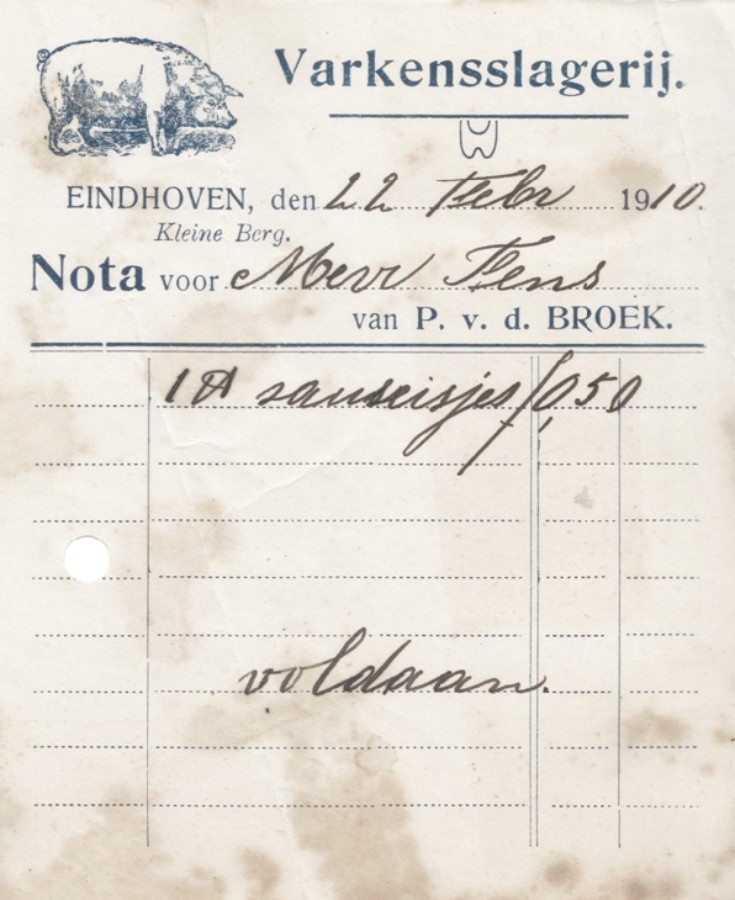 Varkensslagerij.
EINDHOVEN, den 22 Febr 1910.
Kleine Berg.
Nota voor Mevr Fens
van P. v. d. BROEK.
1 ℔ sauseisjes f 0,50
voldaan.